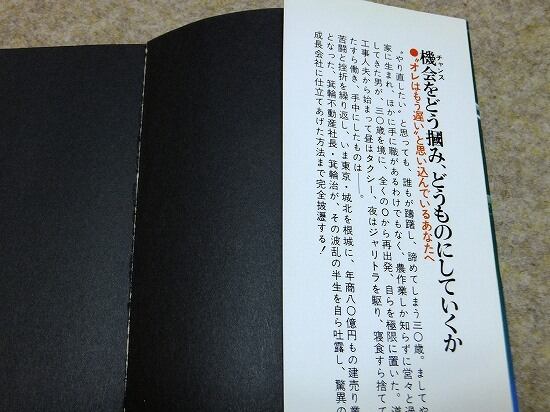 チャンス
機会をどう摑み、どうものにしていくか
●“オレはもう遅い”と思い込んでいるあなたへ
“やり直したい”と思っても、誰もが躊躇し、諦めてしまう三〇歳。まして
家に生まれ、ほかに手に職があるわけでもなく、農作業しか知らずに堂々と過
してきた男が、三〇歳を境に、全くの〇から再出発、自らを極限に置いた。道
工事人夫から始まって昼はタクシー、夜はジャリトラを駆り、寝食すら捨てて
たすら働き、手中にしたものは——。
苦闘と挫折を繰り返し、いま東京・城北を根城に、年商八〇億円もの建売り業
となった、箕輪不動産社長・箕輪治が、その波乱の半生を自ら吐露し、驚異の
成長会社に仕立てあげた方法まで完全披瀝する！